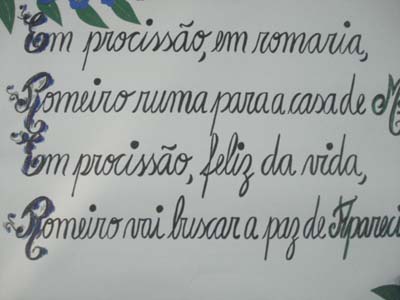 Em procissão, em romaria,
Romeiro ruma para a casa de
Em procissão, feliz da vida,
Romeiro vai buscar a paz de Apareci